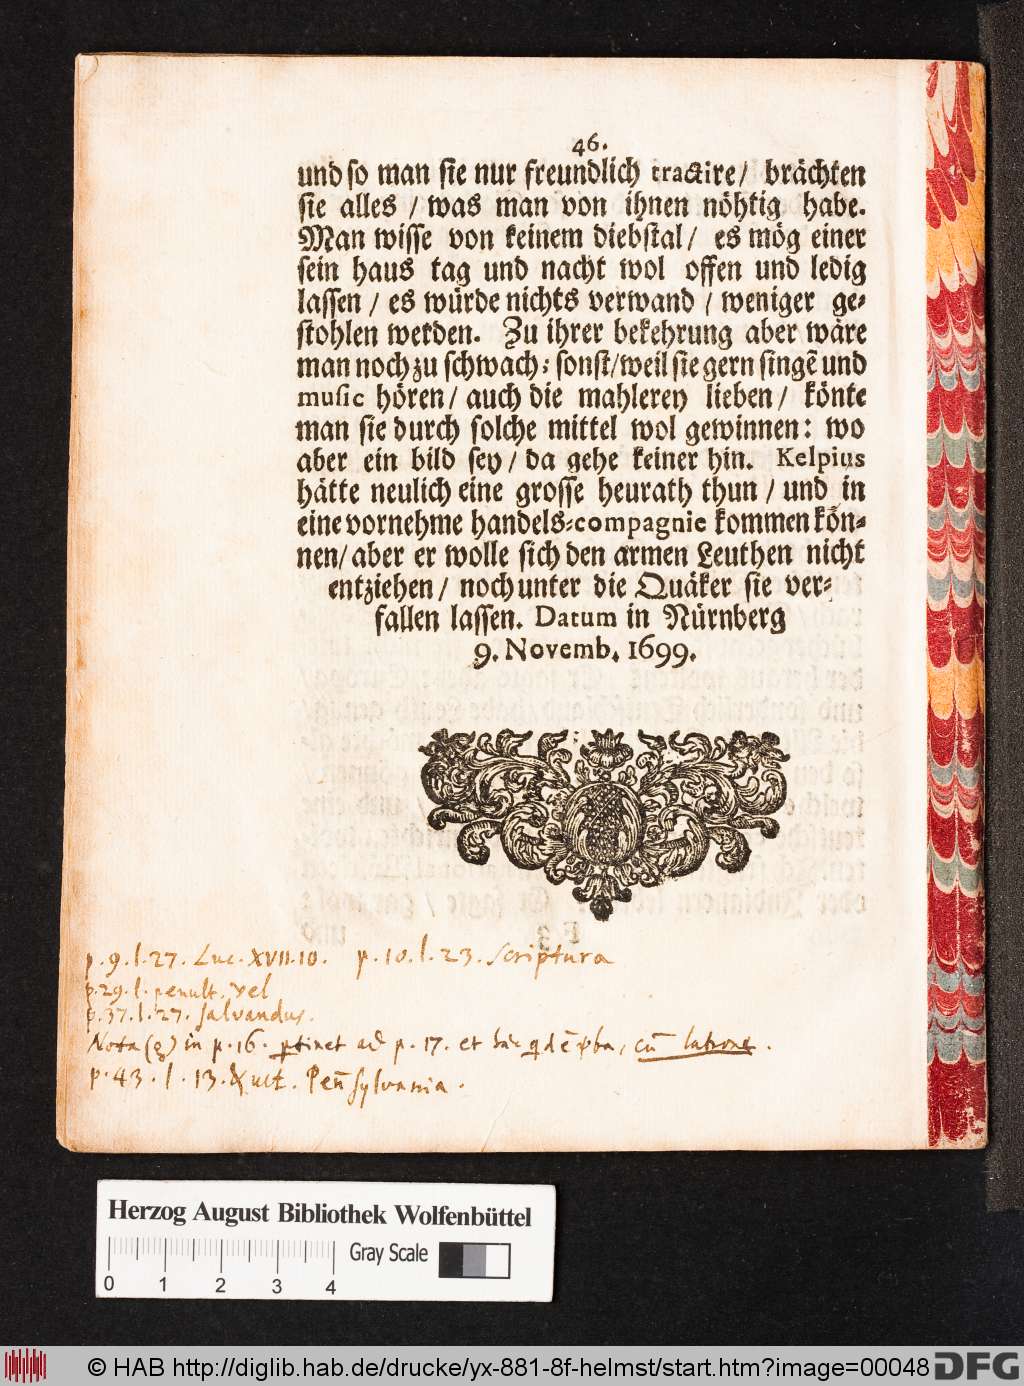 46.
und so man sie nur freundlich tractire/ brächten
sie alles / was man von ihnen nöhtig habe.
Man wisse von keinem diebstal/ es mög einer
sein haus tag und nacht wol offen und ledig
lassen / es würde nichts verwand / weniger ge-
stohlen werden. Zu ihrer bekehrung aber wäre
man noch zu schwach: sonst/weil sie gern singẽ und
music hören / auch die mahlerey lieben / könte
man sie durch solche mittel wol gewinnen: wo
aber ein bild sey / da gehe keiner hin. Kelpius
hätte neulich eine grosse heurath thun / und in
eine vornehme handels-compagnie kommen kön-
nen/ aber er wolle sich den armen Leuthen nicht
entziehen / noch unter die Quäker sie ver-
fallen lassen. Datum in Nürnberg
9. Novemb. 1699.
p. 9. l. 27. Luc. XVII. 10. p. 10. l. 23. Scriptura
p. 29. l. penult. vel
p. 37. l. 27. salvandus.
Nota (g) in p. 16. ptinet ad p. 17. et , cū latrone.
p. 43. l. 13. & ult. Peñsylvania.
Herzog August Bibliothek Wolfenbüttel
Gray Scale
0 1 2 3 4
© HAB http://diglib.hab.de/drucke/yx-881-8f-helmst/start.htm?image=00048 DFG